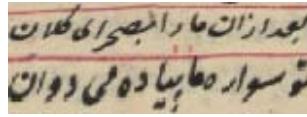 بعد ازان ما را بصحرای کلان
تو سواره ما پیاده می دوان